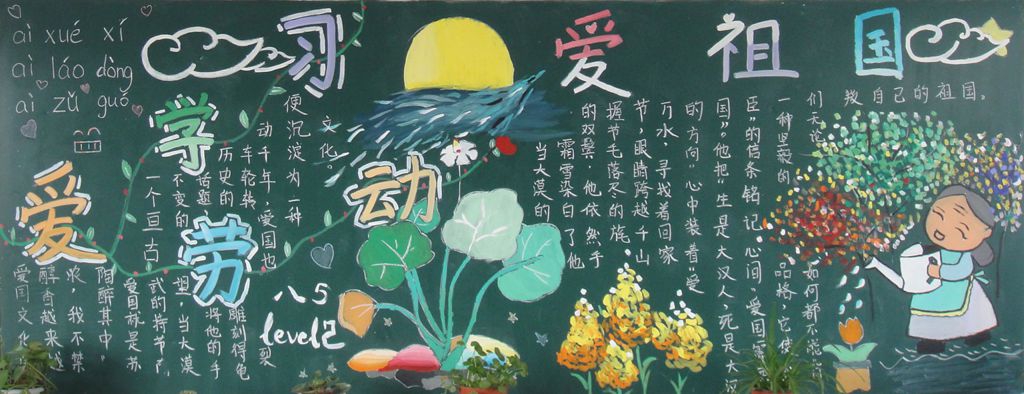 ài xué xí
ài láo dòng
ài zǔ guó
爱学习
爱劳动
爱祖国
一个亘古
不变的
话题
历史的
车轮转
动千年，爱国也
便沉淀为一种
文化。
爱国文化
醇香越来越
浓，我不禁
陶醉其中，
爱国就是苏
武的持节
当大漠
将他的手
雕刻得龟
裂
八5
level2
当大漠的
霜雪染白了他
的双鬓，他依然手
握节毛落尽的旄
节，眼睛跨越千山
万水，寻找着回家
的方向"心中装着"爱
国"，他把"生是大汉人，死是大汉
臣"的信条铭记心间，爱国
一种坚毅的品格，它使
们无论如何都不能
数自己的祖国。